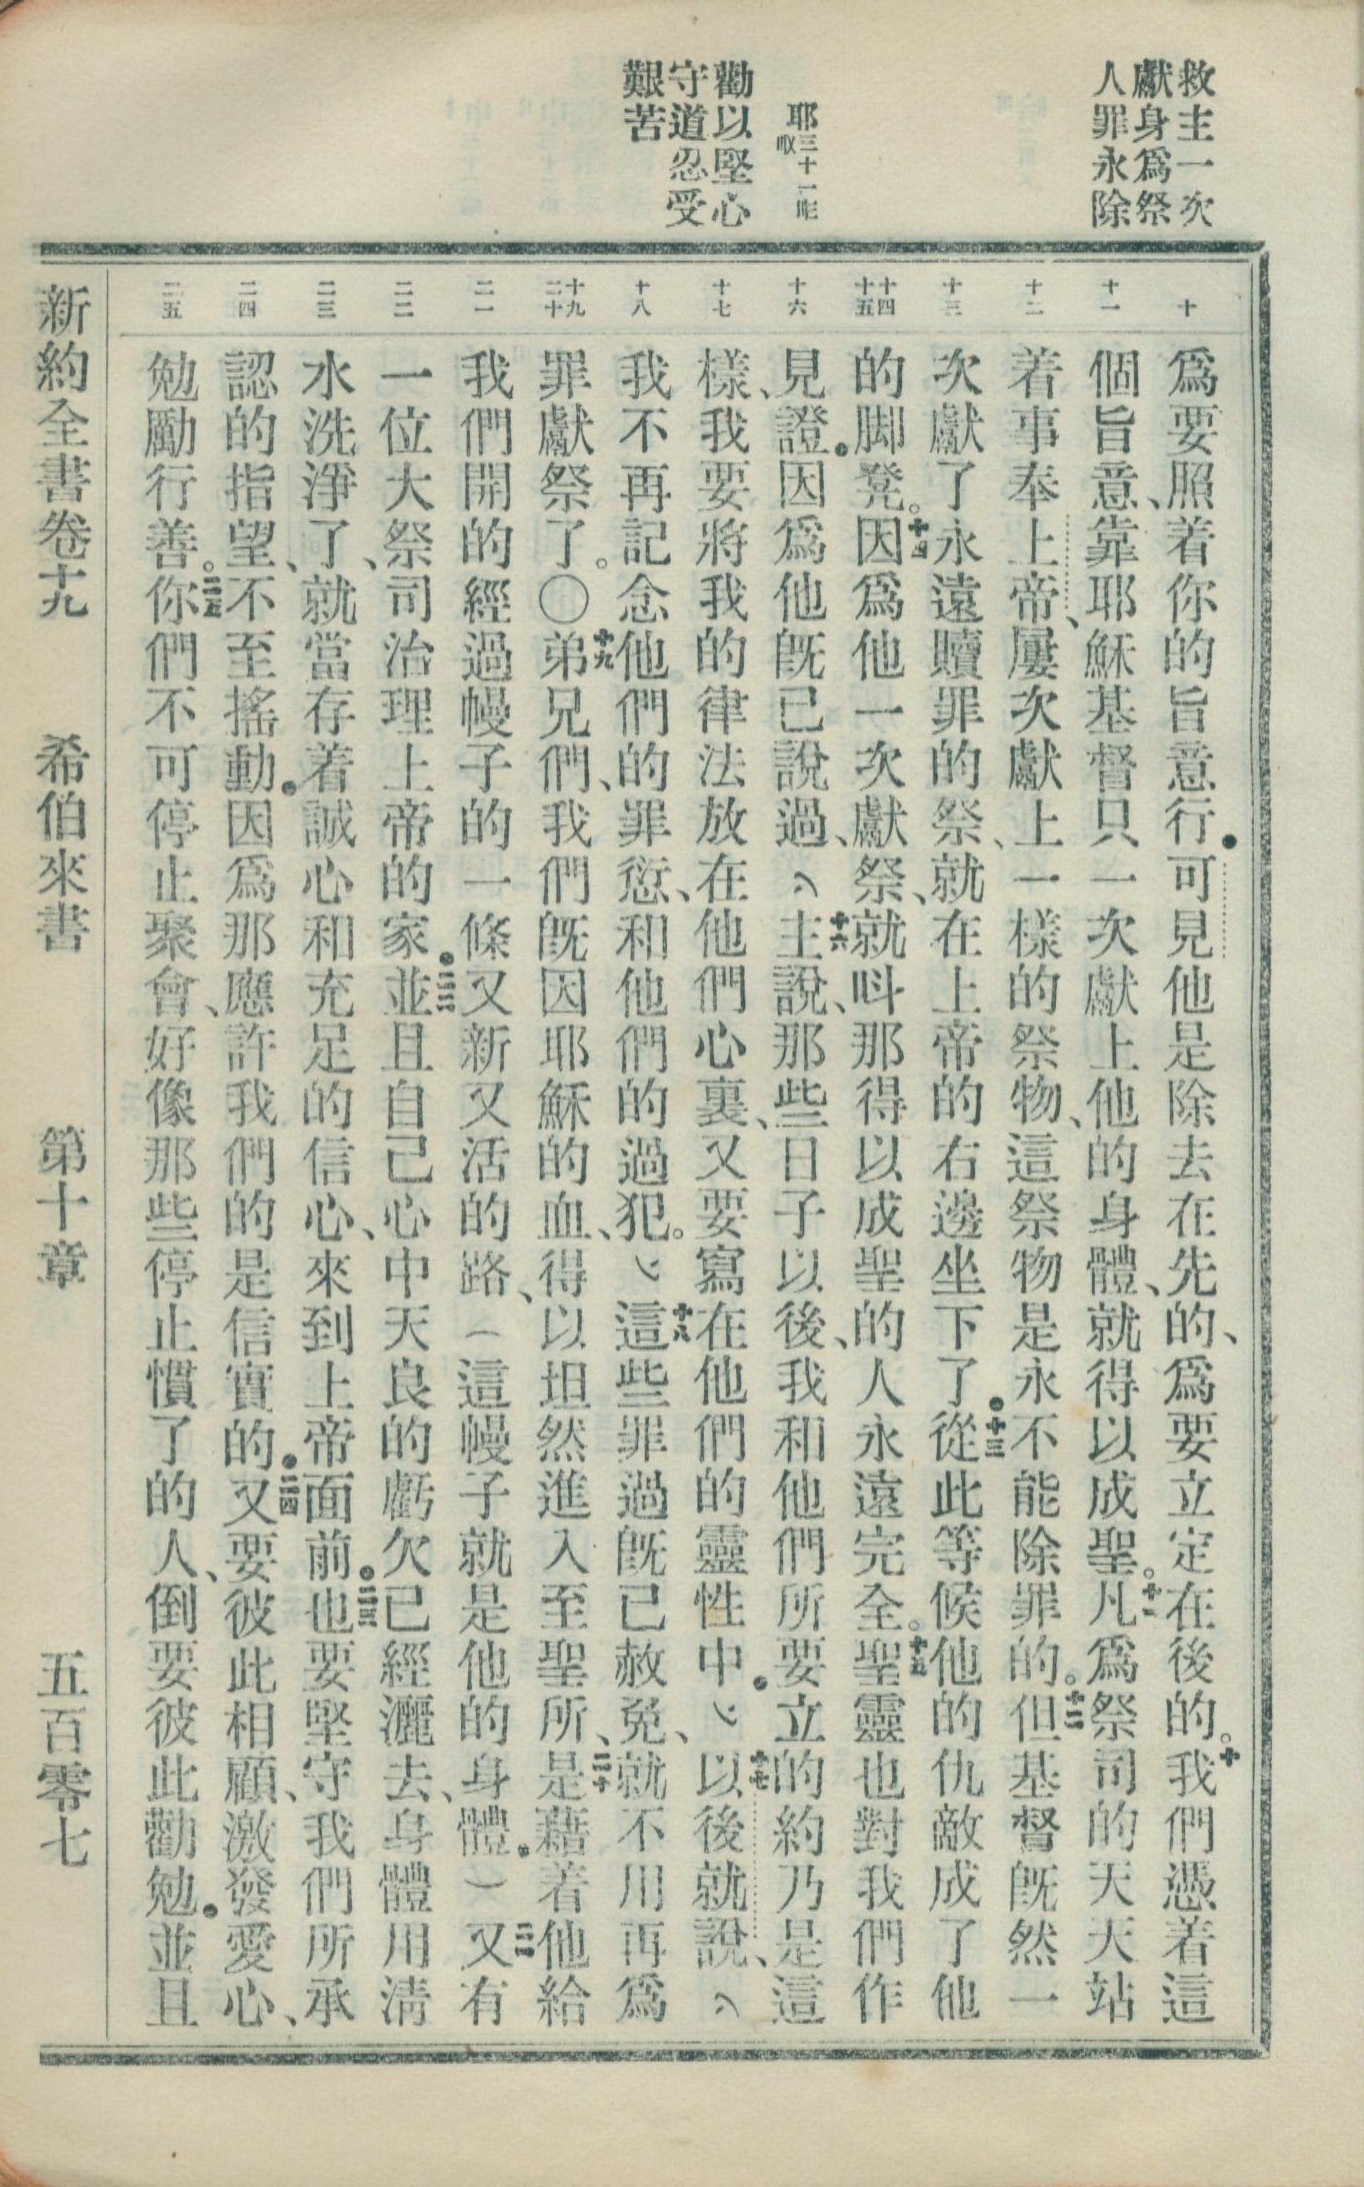 救主一次
獻身爲祭
人罪永除
耶三十一
勸以堅心
守道忍受
艱苦
十
十一
十二
十三
十四
十五
十六
十七
十八
十九
二十
二一
二二
二三
二四
二五
爲要照着你的旨意行．可見他是除去在先的、爲要立定在後的。十我們憑着這
個旨意、靠耶穌基督只一次獻上他的身體、就得以成聖。十一凡爲祭司的天天站
着事奉上帝、屢次獻上一樣的祭物、這祭物是永不能除罪的。十二但基督旣然一
次獻了永遠贖罪的祭、就在上帝的右邊坐下了．十三從此等候他的仇敵成了他
的脚凳。十四因爲他一次獻祭、就叫那得以成聖的人永遠完全。十五聖靈也對我們作
見證．因爲他旣已說過、﹁十六主說、那些日子以後、我和他們所要立的約乃是這
樣、我要將我的律法放在他們心裏、又要寫在他們的靈性中．﹂十七以後就說、﹁
我不再記念他們的罪愆、和他們的過犯。﹂十八這些罪過旣已赦免、就不用再爲
罪獻祭了。〇十九弟兄們、我們旣因耶穌的血、得以坦然進入至聖所、二十是藉着他給
我們開的經過幔子的一條又新又活的路、（這幔子就是他的身體．）二一又有
一位大祭司治理上帝的家．二二並且自己心中天良的虧欠已經灑去、身體用淸
水洗淨了、就當存着誠心和充足的信心、來到上帝面前．二三也要堅守我們所承
認的指望、不至搖動．因爲那應許我們的是信實的．二四又要彼此相顧、激發愛心、
勉勵行善。二五你們不可停止聚會、好像那些停止慣了的人、倒要彼此勸勉．並且
新約全書卷十九　希伯來書　第十章　五百零七